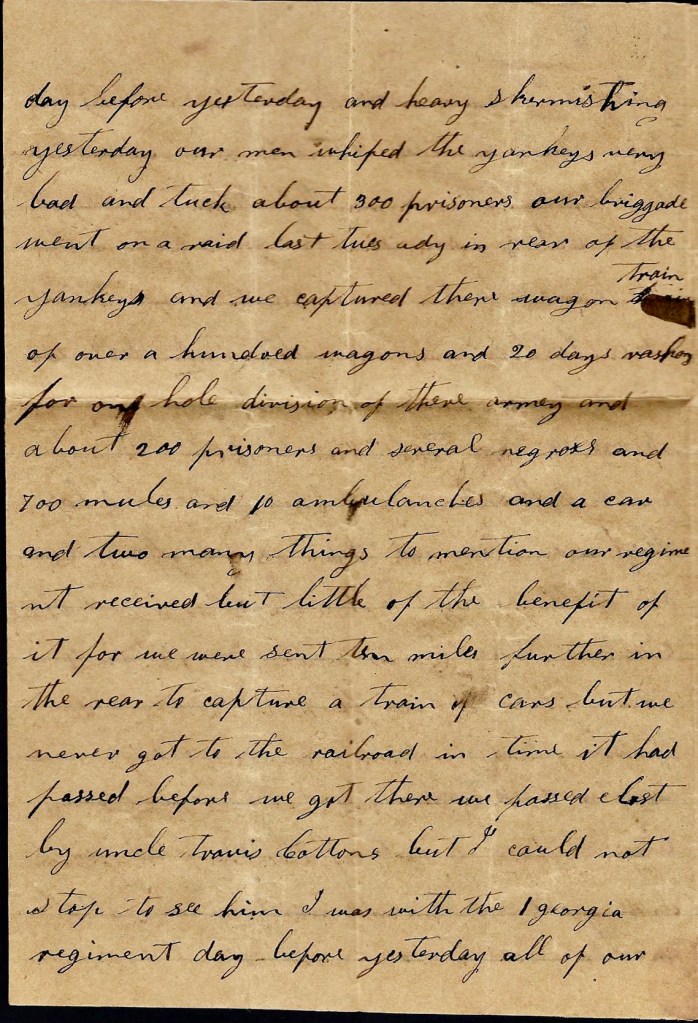 day before yesterday and heavy skermishing
yesterday our men whiped the yankeys very
bad and tuck about 300 prisoners our briggade
went on a raid last tues ady in rear of the
yankeys and we captured there wagon train
of over a hundred wagons and 20 days rashon
for one hole division of there armey and
about 200 prisoners and several negroes and
700 mules and 10 ambulanches and a car
and two many things to mention our regime
nt received but little of the benefit of
it for we were sent ten miles further in
the rear to capture a train of cars but we
never got to the railroad in time it had
passed before we got there we passed clost
by uncle travis bottons but I could not
stop to see him I was with the 1 georgia
regiment day before yesterday all of our